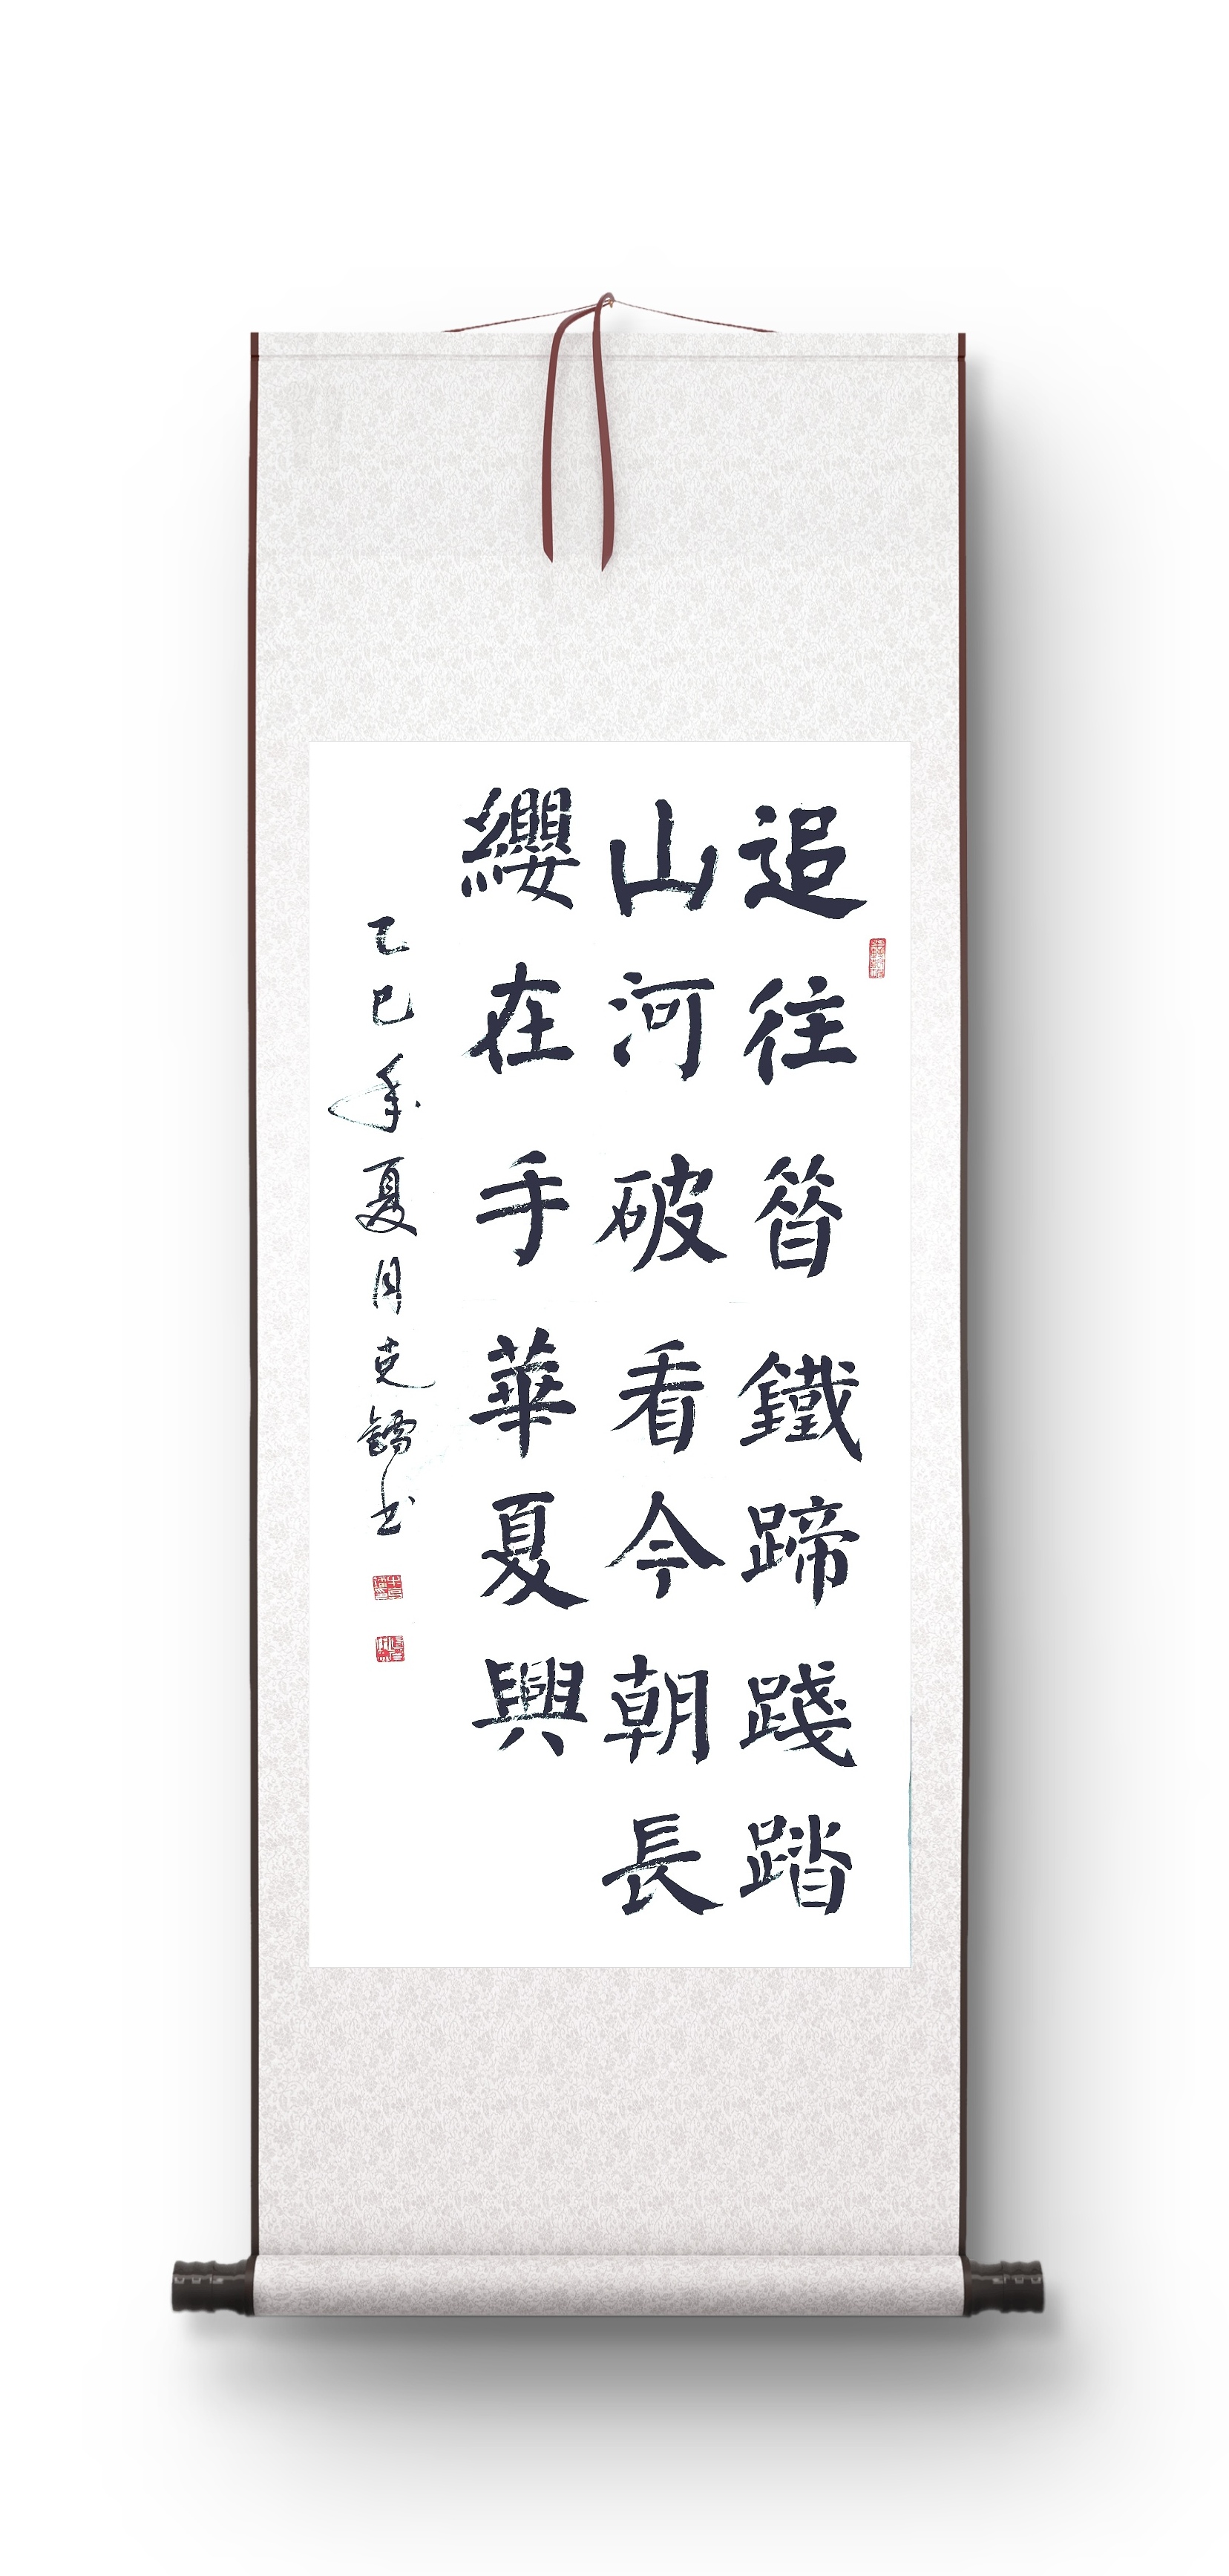 追往昔鐵蹄踐踏
山河破看今朝長
纓在手華夏興
乙巳年夏月克书